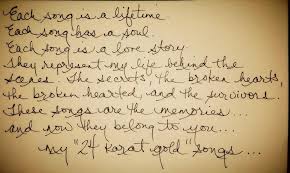 Each song is a lifetime
Each song has a soul.
Each song is a love story
They represent my life behind the
scenes. The secrets the broken hearts,
the broken hearted and the survivors.
These songs are the memories...
and now they belong to you...
my "24 karat gold" songs...